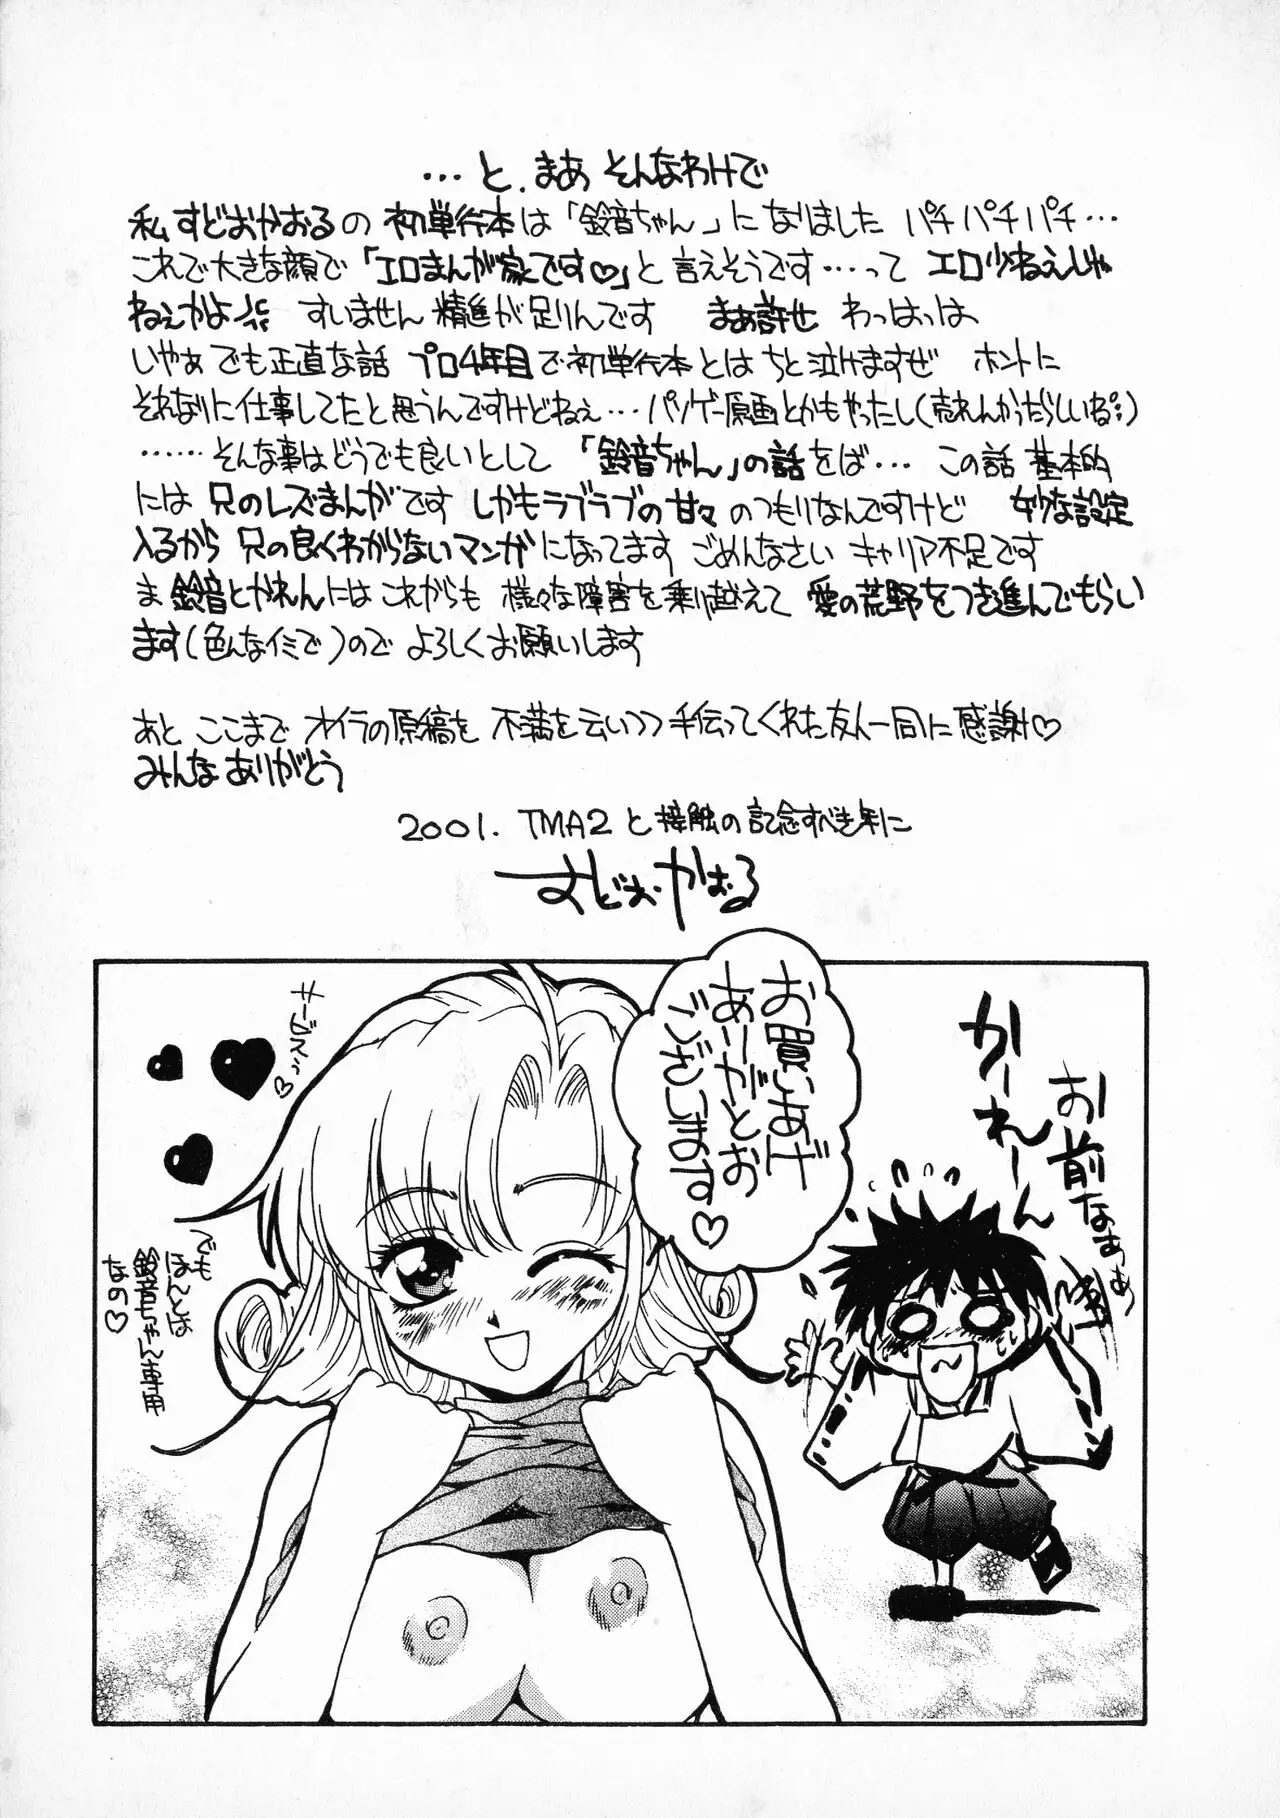 …と、まあ そんなわけで
私すどおかおるの初単行本は「鈴音ちゃん」になりました パチパチパチ…
これで大きな顔で「エロまんが家です♡」と言えそうです…って エロ少ねぇじゃ
ねぇかよ すいません精進が足りんです まぁ許せ わっはっは
いやぁでも正直な話 プロ4年目で初単行本とはちと泣けますぜ ホントに
それなりに仕事してたと思うんですけどねぇ…パソゲー原画とかもやったし(売れんかったらしいね)
……そんな事はどうでも良いとして「鈴音ちゃん」の話をば… この話 基本的
には兄のレズまんがです しかもラブラブの甘々のつもりなんですけど 妙な設定
入るから 兄の良くわからないマンガになってます ごめんなさい キャリア不足です
ま 鈴音とかれんにはこれからも 様々な障害を乗り越えて 愛の荒野をつき進んでもらい
ます(色んなイミで)ので よろしくお願いします
あと ここまで オイラの原稿を 不満を云いつつ手伝ってくれた友人一同に感謝♡
みんなありがとう
2001. TMA2と接触の記念すべき年に
すどおかおる
お買いあげ
あーがとお
ございます♡
かーれーん
お前なぁぁ
サービスぅ♡
でも
ほんとは
鈴音ちゃん専用
なの♡